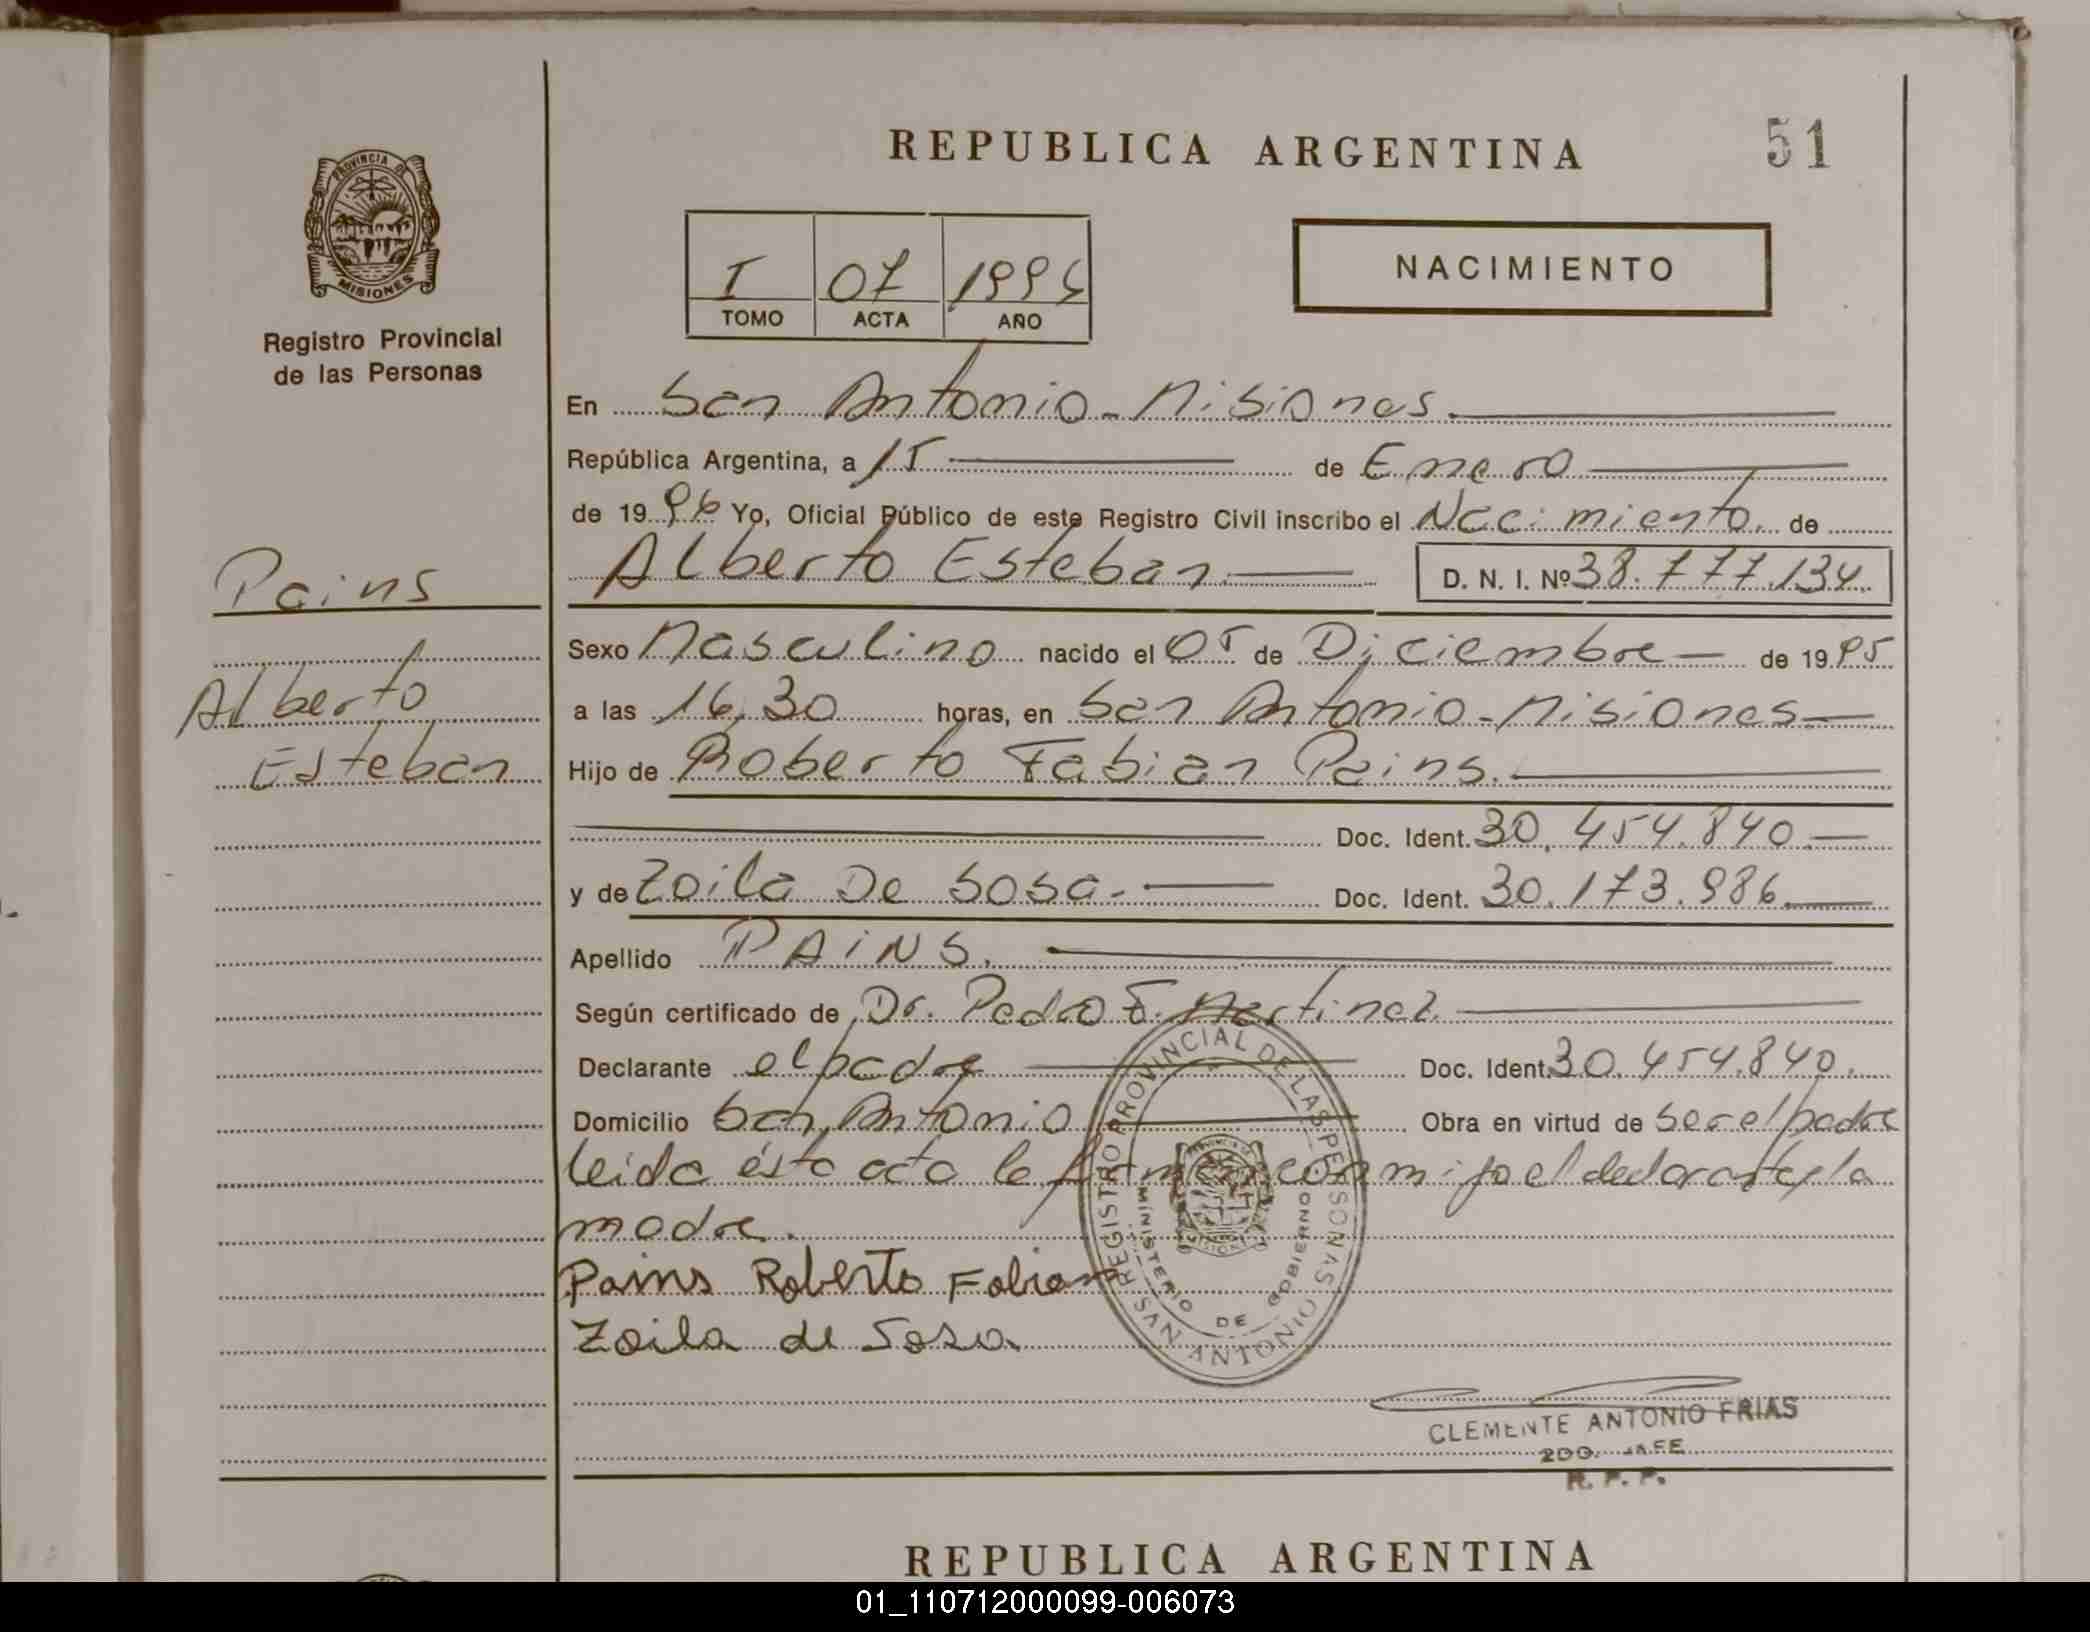 REPUBLICA ARGENTINA
51
PROVINCIA DE MISIONES
Registro Provincial
de las Personas
I 07 1996
TOMO ACTA AÑO
NACIMIENTO
En San Antonio - Misiones.
República Argentina, a 15 de Enero
de 1996 Yo, Oficial Público de este Registro Civil inscribo el Nacimiento de
Alberto Esteban D. N. I. Nº 38.777.134
Pains
Alberto
Esteban
Sexo Masculino nacido el 05 de Diciembre de 1995
a las 16,30 horas, en San Antonio - Misiones
Hijo de Roberto Fabian Pains.
Doc. Ident. 30.454.840
y de Zoila De Sosa. Doc. Ident. 30.173.986
Apellido PAINS.
Según certificado de Dr. Pedro E. Martinez
Declarante el padre Doc. Ident. 30.454.840.
Domicilio San Antonio Obra en virtud de ser el padre
leida ésta acta la firman conmigo el declarante y la
madre.
Pains Roberto Fabian
Zoila de Sosa
REGISTRO PROVINCIAL DE LAS PERSONAS
MINISTERIO DE GOBIERNO
SAN ANTONIO
CLEMENTE ANTONIO FRIAS
2DO. JEFE
R. P. P.
REPUBLICA ARGENTINA
01_110712000099-006073